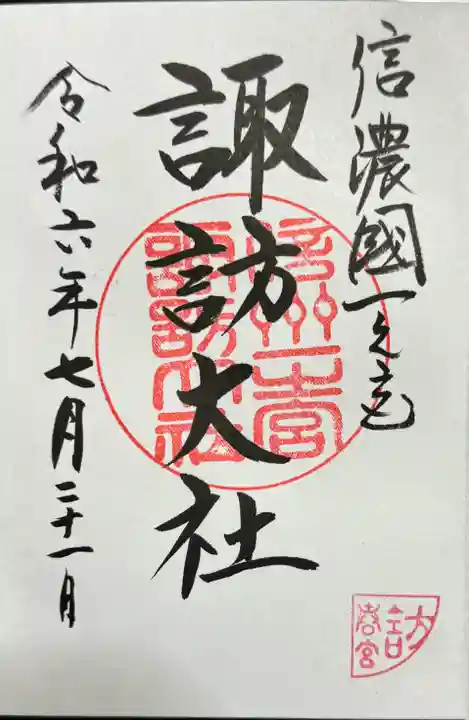 信濃國一之宮
諏訪大社
信州一宮
諏訪大社
令和六年七月二十一日
訪
春宮